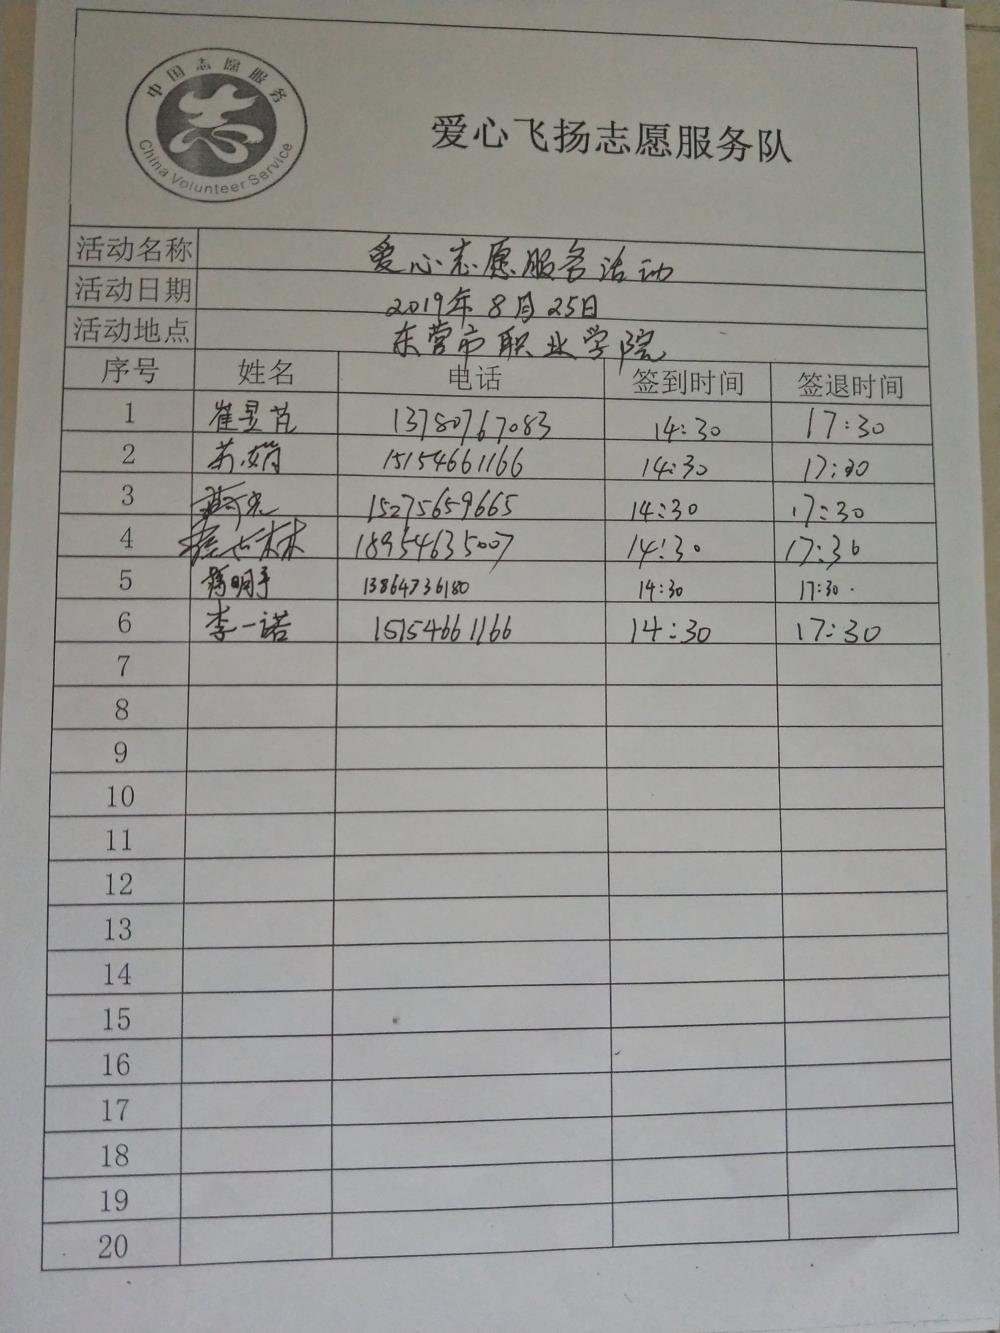 中国志愿服务
China Volunteer Service
爱心飞扬志愿服务队
活动名称 爱心志愿服务活动
活动日期 2019年8月25日
活动地点 东营市职业学院
序号 姓名 电话 签到时间 签退时间
1 崔昱芃 13780767083 14:30 17:30
2 苏娟 15154661166 14:30 17:30
3 15275659665 14:30 17:30
4 18954635007 14:30 17:30
5 13864736180 14:30 17:30
6 李一诺 15154661166 14:30 17:30
7
8
9
10
11
12
13
14
15
16
17
18
19
20